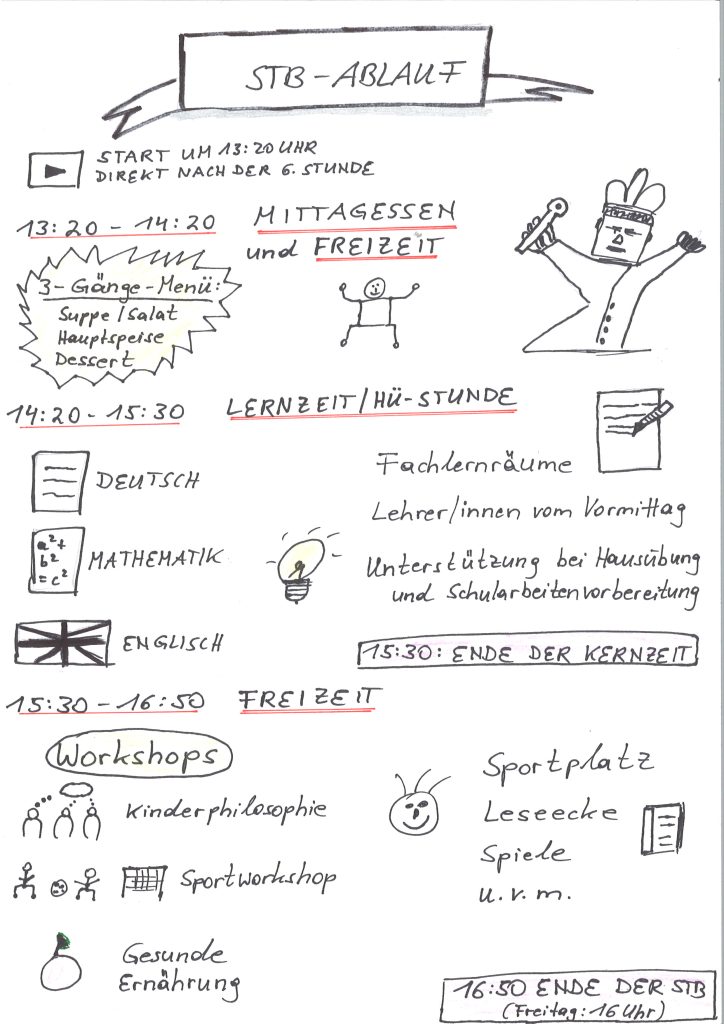 STB-ABLAUF
START UM 13:20 UHR
DIREKT NACH DER 6. STUNDE
13:20 - 14:20 MITTAGESSEN
und FREIZEIT
3-Gänge-Menü:
Suppe/Salat
Hauptspeise
Dessert
14:20 - 15:30 LERNZEIT/HÜ-STUNDE
DEUTSCH
a²+
b²
=c²
MATHEMATIK
ENGLISCH
Fachlernräume
Lehrer/innen vom Vormittag
Unterstützung bei Hausübung
und Schularbeitenvorbereitung
15:30: ENDE DER KERNZEIT
15:30 - 16:50 FREIZEIT
Workshops
Kinderphilosophie
Sportworkshop
Gesunde
Ernährung
Sportplatz
Leseecke
Spiele
u.v.m.
16:50 ENDE DER STB
(Freitag: 16 Uhr)